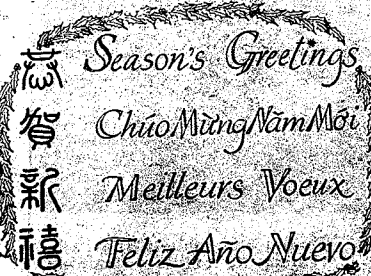 恭賀新禧
Season's Greetings
Chúo Mừng Năm Mới
Meilleurs Voeux
Feliz Año Nuevo